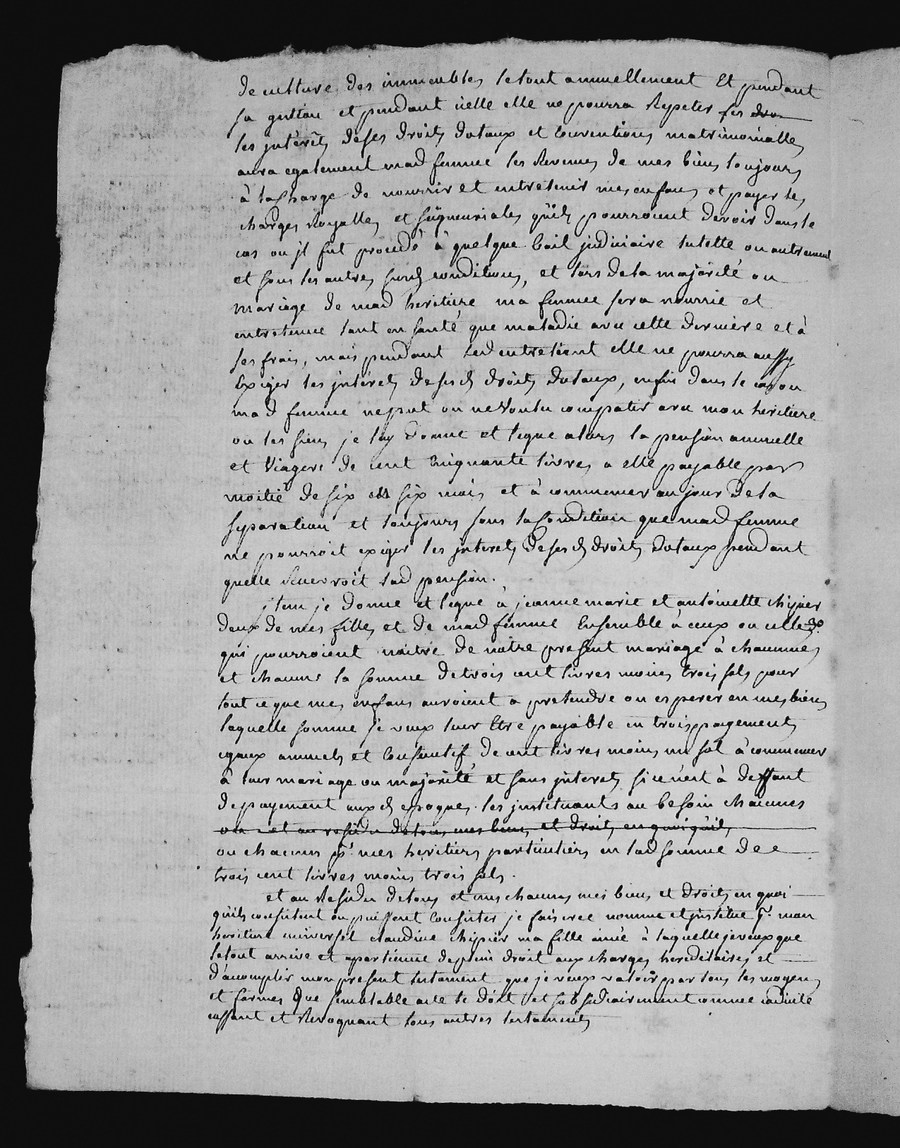 de culture des immeubles letout annuellement Et pendant
sa gestion et pendant icelle elle ne pourra Repeter ses dro
les jntérêts deses droits dotaux et Conventions matrimonialles
aura egalement mad femme les Revenus de mes biens toujours
à la Charge de nourrir et entretenir mes enfans et payer les
charges Royalles et seigneuriales quils pourroient devoir dansle
cas ou jl fut procedé à quelque bail judiciaire tutelle ou autrement
et sous les autres susd conditions, et lors dela majorité ou
mariage de mad heritiere ma femme sera nourrie et
entretenue tant en santé que maladie avec cette derniere et à
ses frais, mais pendant led entretient elle ne pourra aussy
Exiger les jntérets desesd droits dotaux, enfin dans le cas ou
mad femme ne put ou ne Voulu compatir avec mon heritiere
ou les siens je luy donne et legue alors la pension annuelle
et Viagere de cent Cinquante livres a elle payable par
moitié de six en six mois et à commencer au jour dela
separation et toujours sous la Condition que mad femme
ne pourroit exiger les jnterets desesd droits dotaux pendant
quelle Recevroit lad pension.
jtem je donne et legue à jeanne marie et antoinette chipier
deux de mes filles et de mad femme Ensemble à ceux ou celles
qui pourroient naitre de nôtre present mariage à chacunes
et chacuns la somme detrois cent livres moins trois sols pour
tout ce que mes enfans auroient a pretendre ou esperer en mes biens
laquelle somme je veux leur Etre payable en trois payements
egaux annuels et Consecutif de cent livres moins un sol à commencer
à leur mariage ou majorité et sans jnterets si ce n'est à deffaut
de payement auxd epoques. les jnstituants au besoin chacunes
et au residu de tous mes biens et droits en quoi quils
ou chacuns pr. mes heritiers particuliers en lad somme de
trois cent livres moins trois sols.
et au Residu detous et uns chacuns mes biens et droits en quoi
quils consistent ou puissent Consister je fais cree nomme et jnstitue pr. mon
heritiere universel claudine chipier ma fille ainée à laquelle je veux que
letout arrive et apartienne de plein droit aux charges hereditaires et
d'acomplir mon present testament que je veux valoir par tous les moyens
et formes Que semblable acte le doit et subsidiairement comme codicile
cassant et Revoquant tous autres testaments